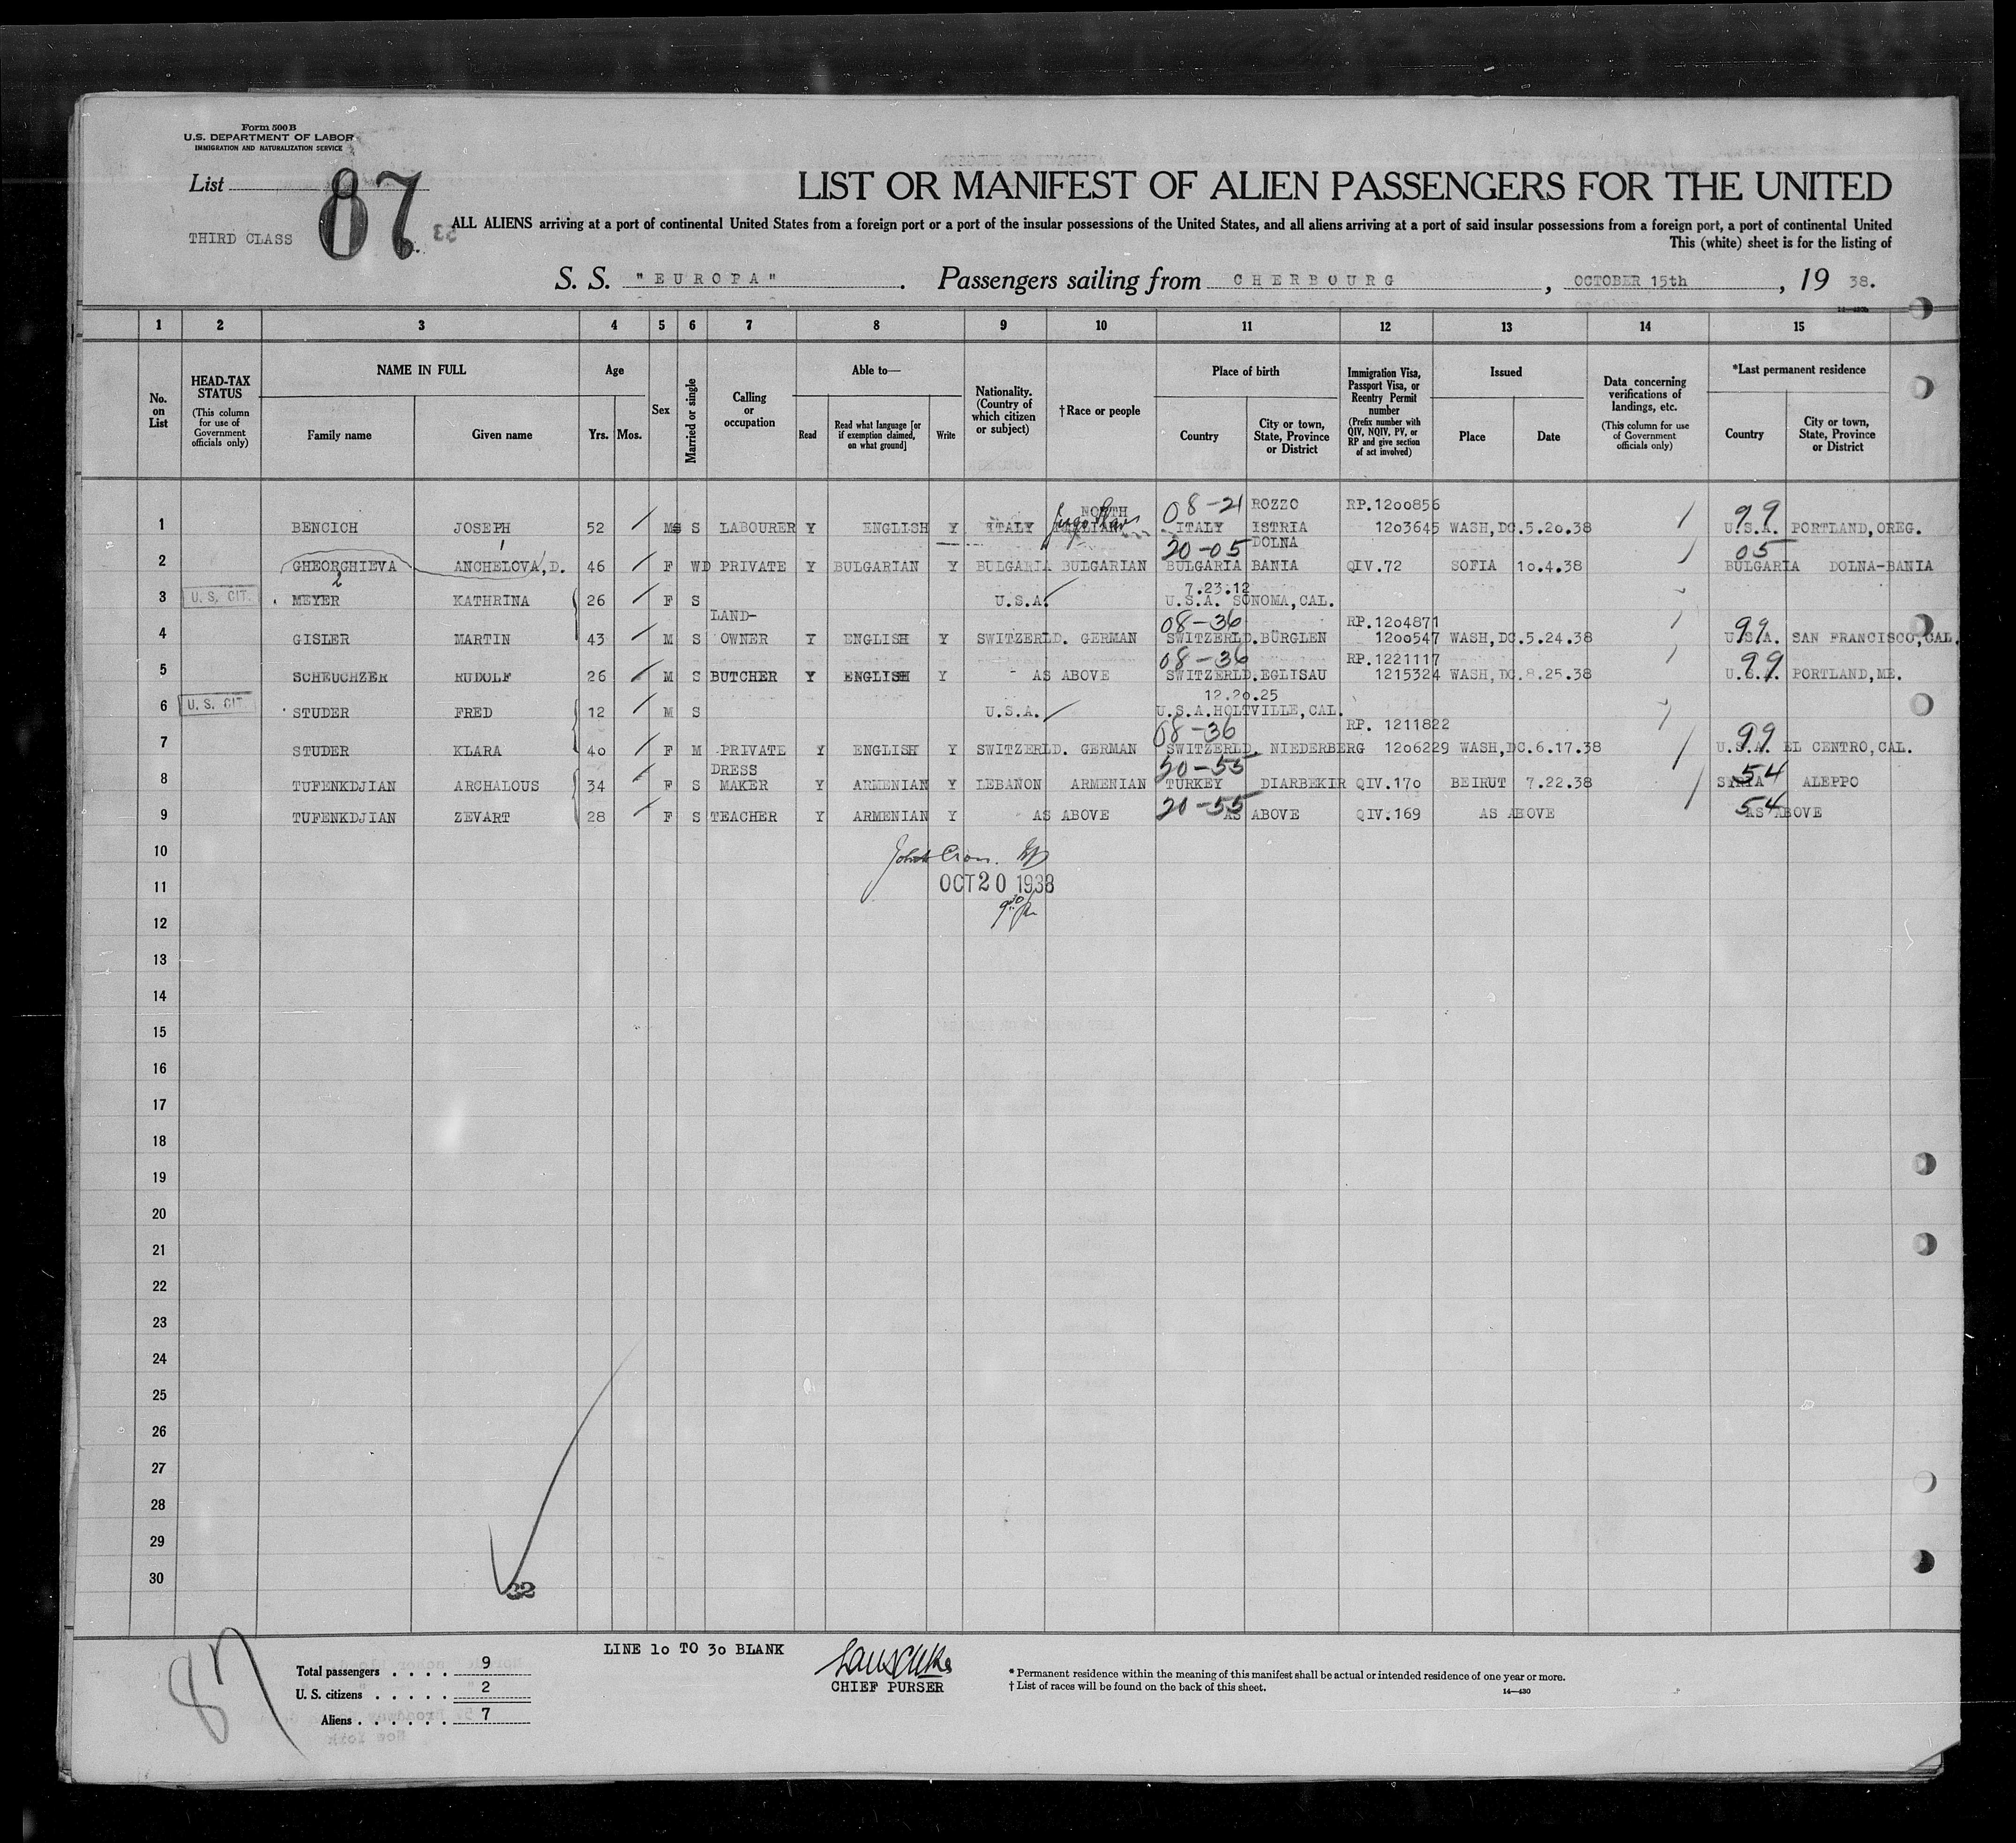 Form 500B
U.S. DEPARTMENT OF LABOR
IMMIGRATION AND NATURALIZATION SERVICE
List 87
THIRD CLASS
LIST OR MANIFEST OF ALIEN PASSENGERS FOR THE UNITED
ALL ALIENS arriving at a port of continental United States from a foreign port or a port of the insular possessions of the United States, and all aliens arriving at a port of said insular possessions from a foreign port, a port of continental United
This (white) sheet is for the listing of
S. S. "EUROPA". Passengers sailing from CHERBOURG, OCTOBER 15th, 19 38.
1 2 3 4 5 6 7 8 9 10 11 12 13 14 15
No. on List
HEAD-TAX STATUS (This column for use of Government officials only)
NAME IN FULL Family name Given name
Age Yrs. Mos.
Sex
Married or single
Calling or occupation
Able to— Read Read what language [or if exemption claimed, on what ground] Write
Nationality. (Country of which citizen or subject)
†Race or people
Place of birth Country City or town, State, Province or District
Immigration Visa, Passport Visa, or Reentry Permit number (Prefix number with QIV, NQIV, PV, or RP and give section of act involved)
Issued Place Date
Data concerning verifications of landings, etc. (This column for use of Government officials only)
*Last permanent residence Country City or town, State, Province or District
NORTH 08-21 ROZZO RP.1200856 99
1 BENCICH JOSEPH 52 M S LABOURER Y ENGLISH Y ITALY ITALIAN ITALY ISTRIA 1203645 WASH,DC.5.20.38 U.S.A. PORTLAND,OREG.
20-05 DOLNA 05
2 GHEORGHIEVA ANCHELOVA,D. 46 F WD PRIVATE Y BULGARIAN Y BULGARIA BULGARIAN BULGARIA BANIA QIV.72 SOFIA 10.4.38 BULGARIA DOLNA-BANIA
7.23.12
3 U.S. CIT. MEYER KATHRINA 26 F S U.S.A. U.S.A. SONOMA,CAL.
LAND- 08-36 RP.1204871 99
4 GISLER MARTIN 43 M S OWNER Y ENGLISH Y SWITZERLD. GERMAN SWITZERLD.BÜRGLEN 1200547 WASH,DC.5.24.38 U.S.A. SAN FRANCISCO,CAL.
08-36 RP.1221117 99
5 SCHEUCHZER RUDOLF 26 M S BUTCHER Y ENGLISH Y AS ABOVE SWITZERLD.EGLISAU 1215324 WASH,DC.8.25.38 U.S.A. PORTLAND,ME.
12.20.25
6 U.S. CIT STUDER FRED 12 M S U.S.A. U.S.A.HOLTVILLE,CAL.
08-36 RP. 1211822 99
7 STUDER KLARA 40 F M PRIVATE Y ENGLISH Y SWITZERLD. GERMAN SWITZERLD. NIEDERBERG 1206229 WASH,DC.6.17.38 U.S.A. EL CENTRO,CAL.
DRESS 20-55 54
8 TUFENKDJIAN ARCHALOUS 34 F S MAKER Y ARMENIAN Y LEBANON ARMENIAN TURKEY DIARBEKIR QIV.170 BEIRUT 7.22.38 SYRIA ALEPPO
20-55 54
9 TUFENKDJIAN ZEVART 28 F S TEACHER Y ARMENIAN Y AS ABOVE AS ABOVE QIV.169 AS ABOVE AS ABOVE
10
11 OCT 20 1938
12
13
14
15
16
17
18
19
20
21
22
23
24
25
26
27
28
29
30
32
87
LINE 10 TO 30 BLANK
Total passengers . . . . 9
U. S. citizens . . . . . 2
Aliens . . . . . . 7
CHIEF PURSER
* Permanent residence within the meaning of this manifest shall be actual or intended residence of one year or more.
† List of races will be found on the back of this sheet.
14—430